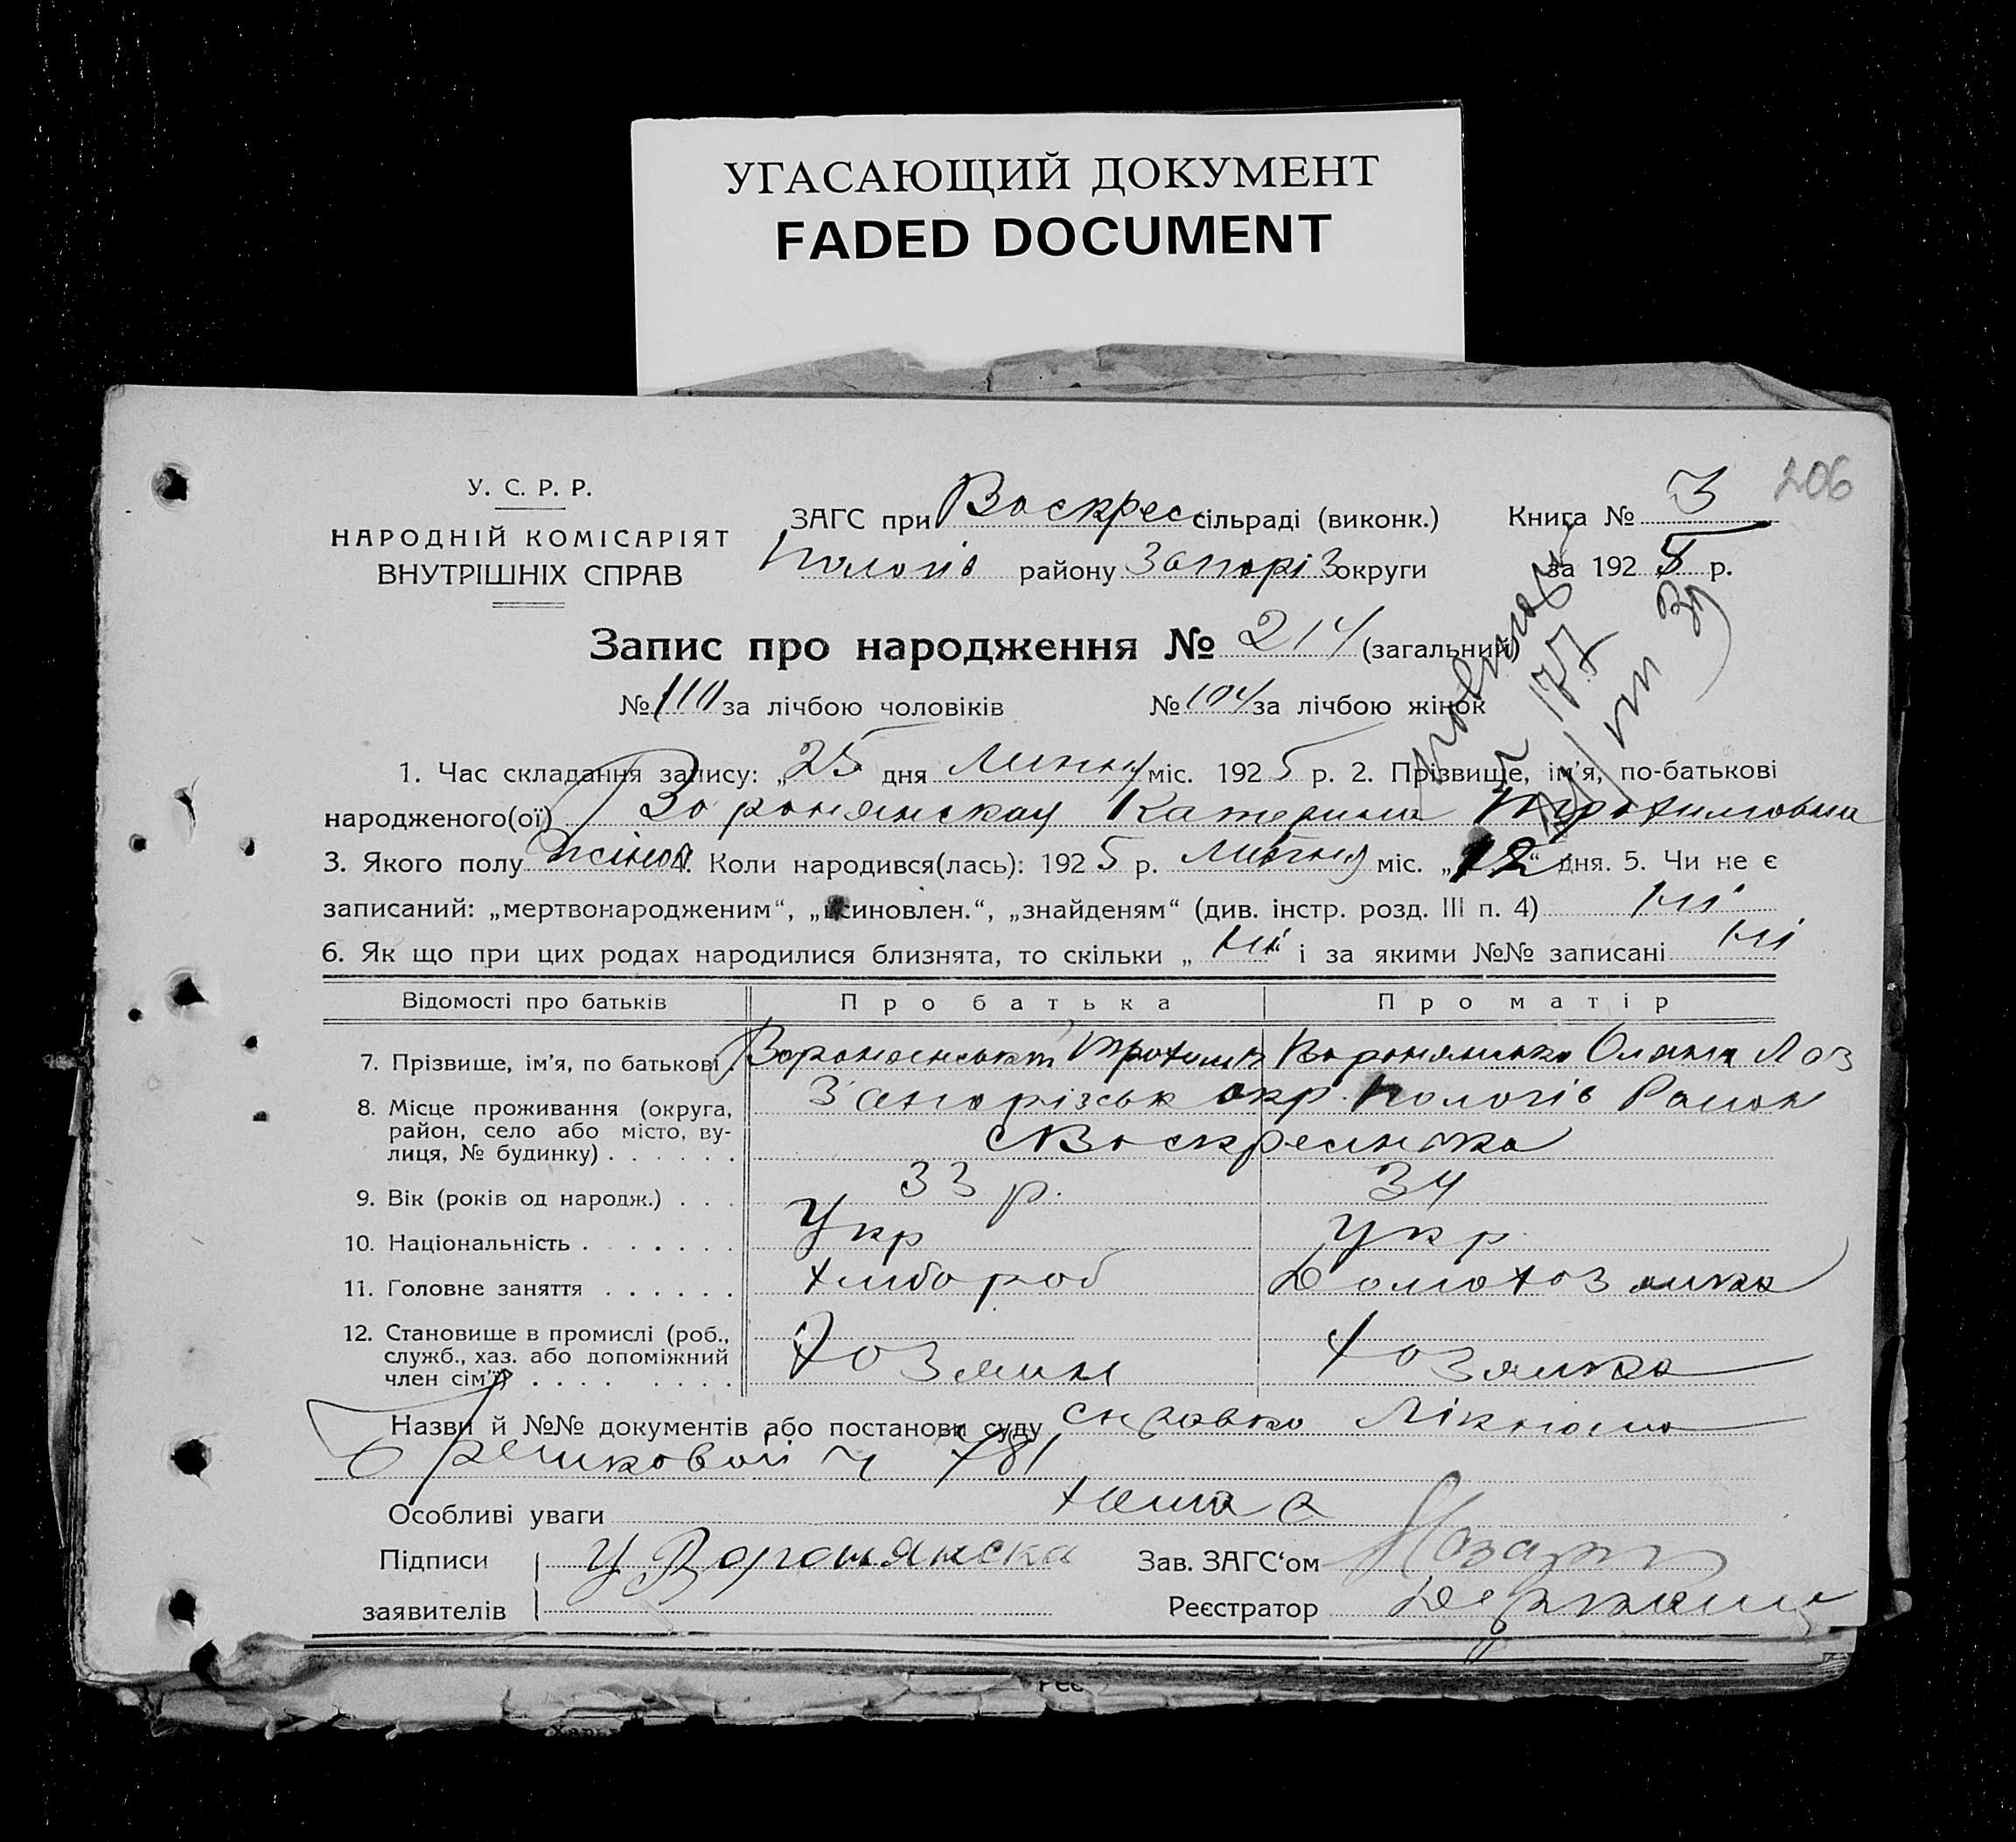 УГАСАЮЩИЙ ДОКУМЕНТ
FADED DOCUMENT
206
У. С. Р. Р.
НАРОДНІЙ КОМІСАРІЯТ
ВНУТРІШНІХ СПРАВ
ЗАГС при Воскрес сільраді (виконк.) Книга № 3
Пологів району Запоріз округи за 1925 р.
Запис про народження № 214 (загальний)
№ 110 за лічбою чоловіків № 104 за лічбою жінок
1. Час складання запису: „25 дня Липня міс. 1925 р. 2. Прізвище, ім'я, по-батькові
народженого(ої) Воронянская Катерина Трохимовна
3. Якого полу жіноч 4. Коли народився(лась): 1925 р. Липня міс. „12“ дня. 5. Чи не є
записаний: „мертвонародженим“, „всиновлен.“, „знайденям“ (див. інстр. розд. III п. 4) ні
6. Як що при цих родах народилися близнята, то скільки „ні“ і за якими №№ записані ні
Відомості про батьків Про батька Про матір
7. Прізвище, ім'я, по батькові . Воронянський Трохим Воронянська Оляна Лаз
8. Місце проживання (округа, Запорізськ окр. Пологів Район
район, село або місто, ву-
лиця, № будинку) . . . . . . с Воскресенька
9. Вік (років од народж.) . . . 33 р. 34
10. Національність . . . . . . . Укр Укр
11. Головне заняття . . . . . . хлібороб Домохозяйка
12. Становище в промислі (роб.,
служб., хаз. або допоміжний
член сім'ї) . . . . . . . . Хозяин Хозяйка
Назви й №№ документів або постанови суду справка Лікпома
ч 781
Особливі уваги нема
Підписи У Воронянска Зав. ЗАГС‘ом
заявителів Реєстратор